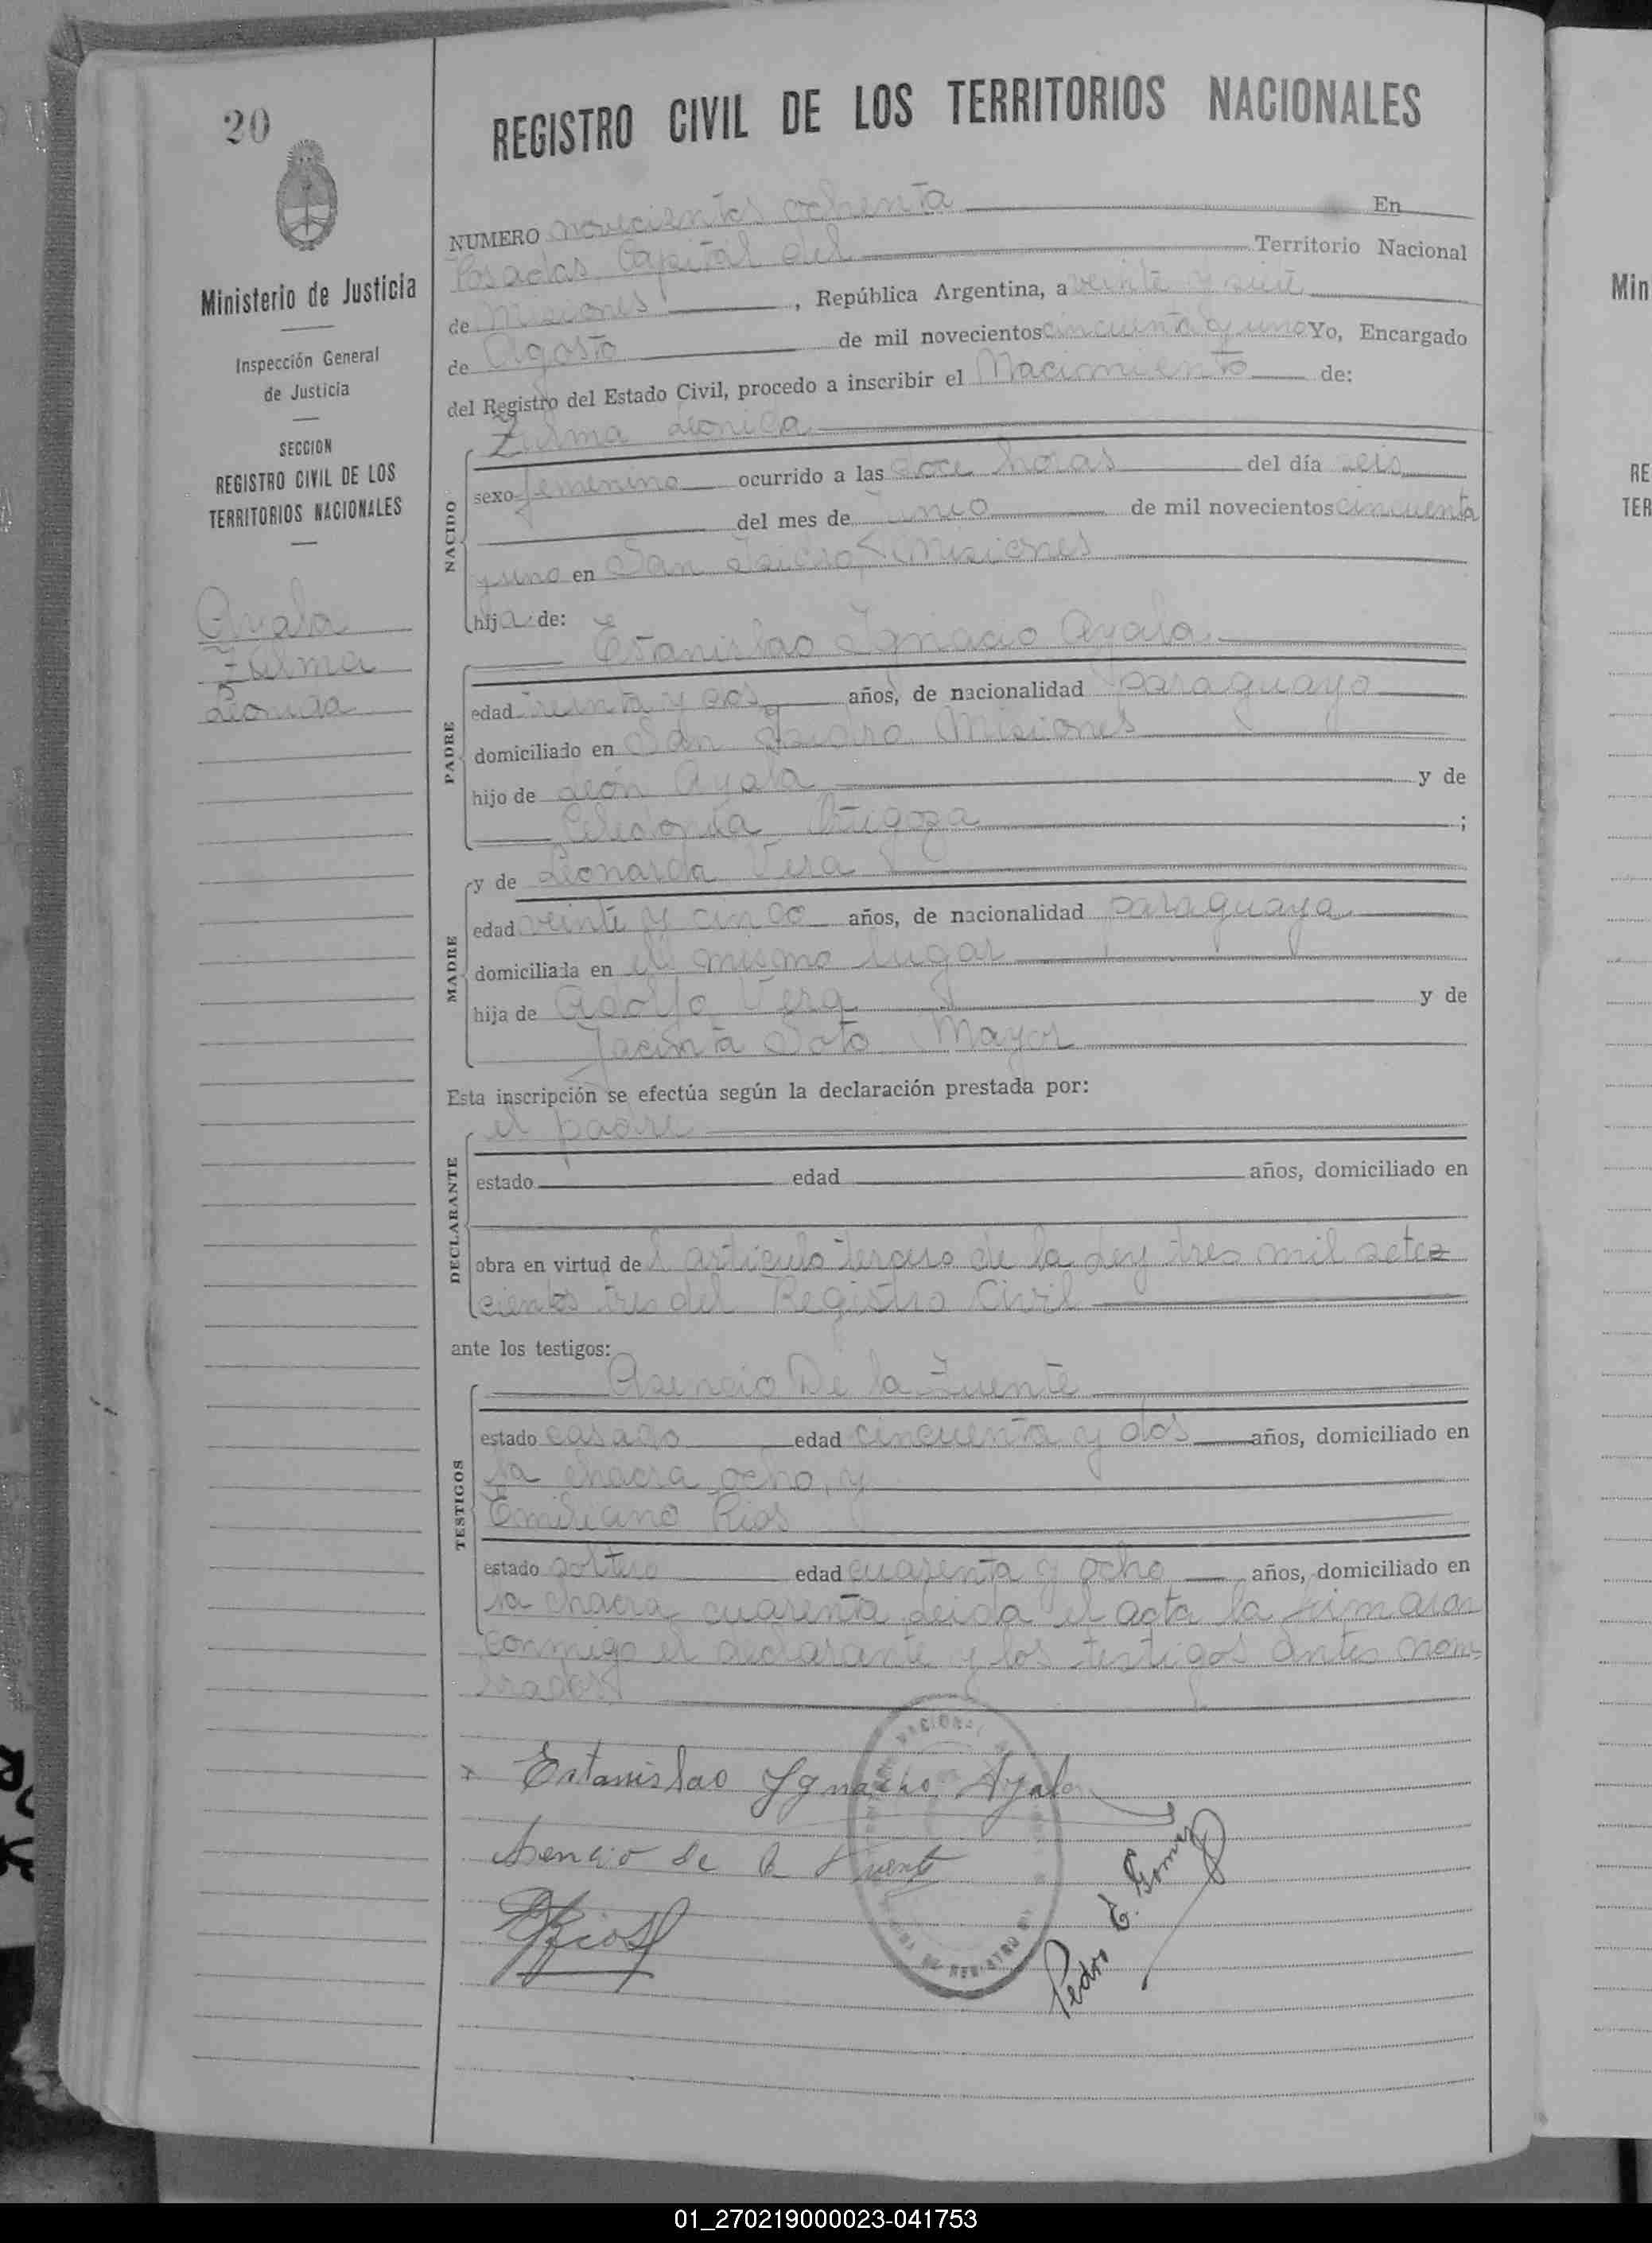 20
Ministerio de Justicia
Inspección General
de Justicia
SECCION
REGISTRO CIVIL DE LOS
TERRITORIOS NACIONALES
Ayala
Zulma
Leonida
REGISTRO CIVIL DE LOS TERRITORIOS NACIONALES
NUMERO novecientos ochenta En
Posadas Capital del Territorio Nacional
de Misiones, República Argentina, a veinte y siete
de Agosto de mil novecientos cincuenta y uno Yo, Encargado
del Registro del Estado Civil, procedo a inscribir el Nacimiento de:
Zulma Leonida
NACIDO
sexo femenino ocurrido a las doce horas del día seis
del mes de Junio de mil novecientos cincuenta
y uno en San Isidro, Misiones
hija de:
Estanislao Ignacio Ayala
PADRE
edad treinta y dos años, de nacionalidad paraguayo
domiciliado en San Isidro, Misiones
hijo de León Ayala y de
Celedonia ;
y de Leonarda Vera
MADRE
edad veinte y cinco años, de nacionalidad paraguaya
domiciliada en el mismo lugar
hija de Adolfo Vera y de
Jacinta Soto Mayor
Esta inscripción se efectúa según la declaración prestada por:
el padre
DECLARANTE
estado edad años, domiciliado en
obra en virtud del artículo tercero de la Ley tres mil sete-
cientos tres del Registro Civil
ante los testigos:
Asencio De la Fuente
TESTIGOS
estado casado edad cincuenta y dos años, domiciliado en
la chacra ocho, y
Emiliano Rios
estado soltero edad cuarenta y ocho años, domiciliado en
la chacra cuarenta Leida el acta la firmaron
conmigo el declarante y los testigos antes nom-
brados
x Estanislao Ygnacio Ayala
Asencio de la Fuente
ERios
Pedro E. Gomez
Min
RE
TER
01_270219000023-041753